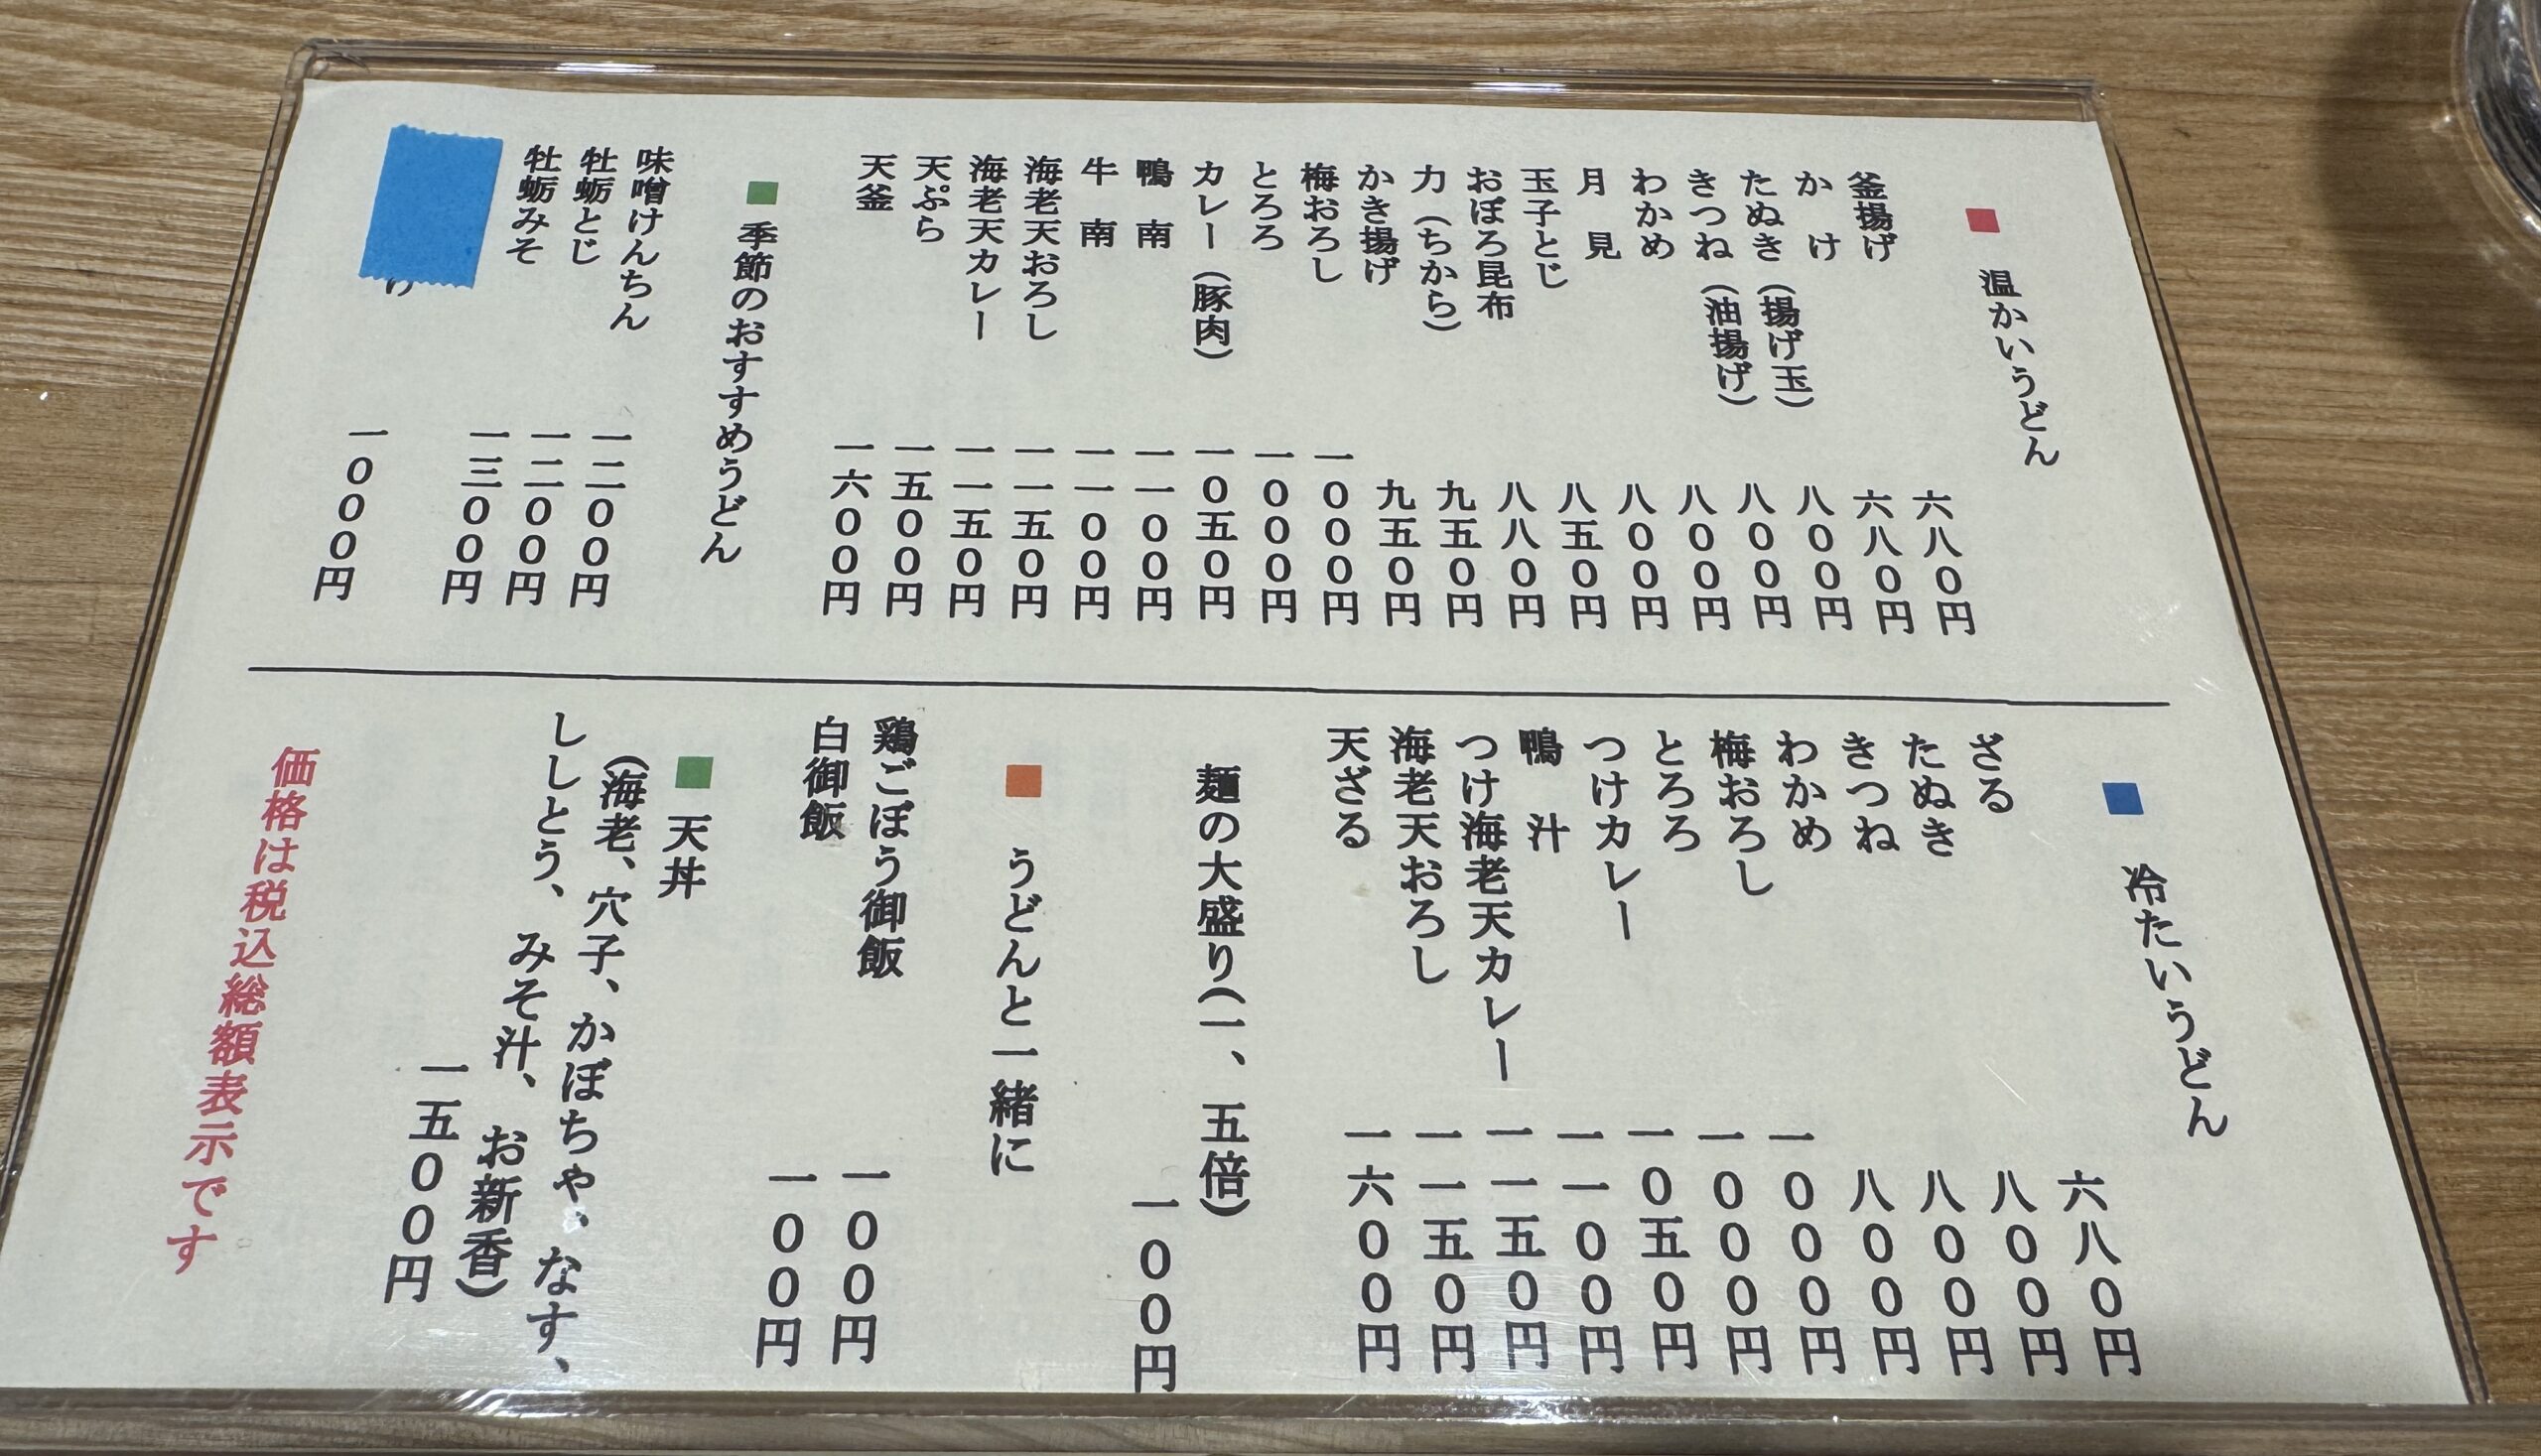 ■ 温かいうどん
釜揚げ 六八〇円
かけ 六八〇円
たぬき（揚げ玉） 八〇〇円
きつね（油揚げ） 八〇〇円
わかめ 八〇〇円
月見 八〇〇円
玉子とじ 八五〇円
おぼろ昆布 八八〇円
力（ちから） 九五〇円
かき揚げ 九五〇円
梅おろし 一〇〇〇円
とろろ 一〇〇〇円
カレー（豚肉） 一〇五〇円
鴨南 一一〇〇円
牛南 一一〇〇円
海老天おろし 一一五〇円
海老天カレー 一一五〇円
天ぷら 一五〇〇円
天釜 一六〇〇円
■ 季節のおすすめうどん
味噌けんちん 一二〇〇円
牡蛎とじ 一二〇〇円
牡蛎みそ 一三〇〇円
一〇〇〇円
■ 冷たいうどん
ざる 六八〇円
たぬき 八〇〇円
きつね 八〇〇円
わかめ 八〇〇円
梅おろし 一〇〇〇円
とろろ 一〇〇〇円
つけカレー 一〇五〇円
鴨汁 一一〇〇円
つけ海老天カレー 一一五〇円
海老天おろし 一一五〇円
天ざる 一六〇〇円
麺の大盛り（一、五倍）
一〇〇円
■ うどんと一緒に
鶏ごぼう御飯 一〇〇円
白御飯 一〇〇円
■ 天丼
（海老、穴子、かぼちゃ、なす、
ししとう、みそ汁、お新香）
一五〇〇円
価格は税込総額表示です